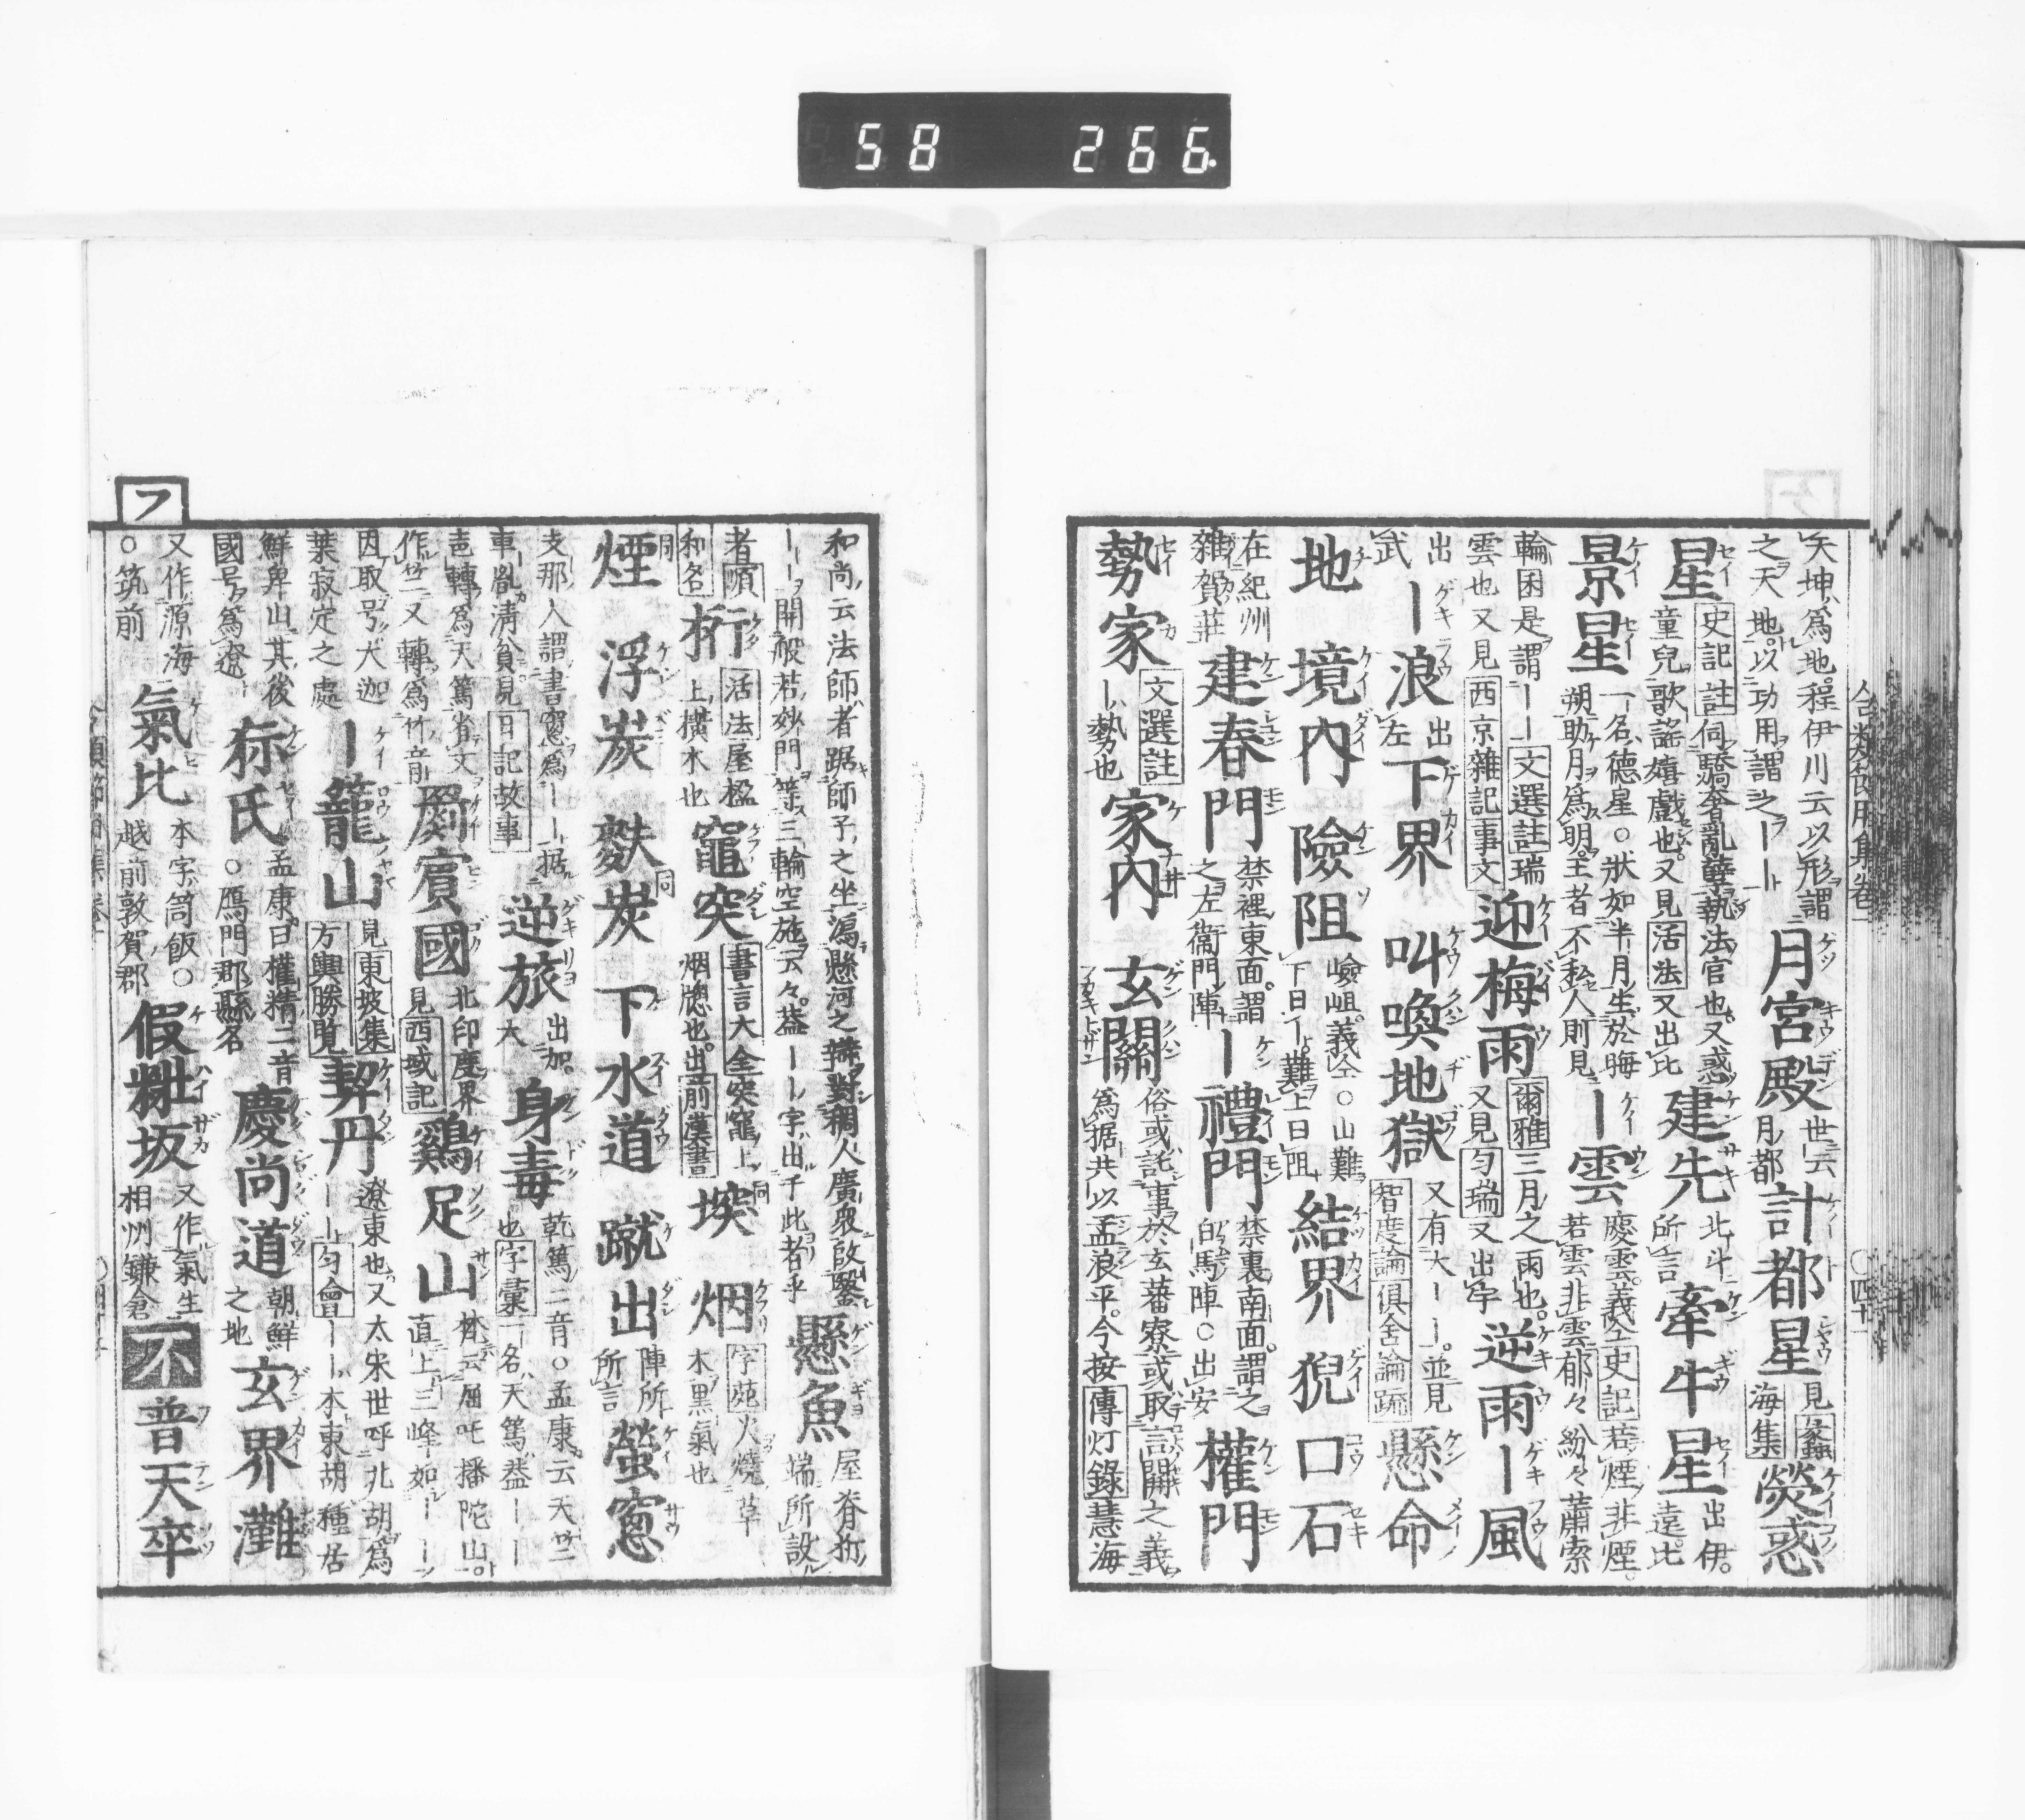 58 266
合類節用集卷一
天坤爲地程伊川云以形謂
之天地以功用謂之――
月宮殿
世云
月都
計都星
見蠡
海集
熒惑
星
史記註伺驕奢亂孽執法官也又惑
童兒歌謠嬉戲也又見活法又出比
建先
北斗
所言
牽牛星
出伊
遠比
景星
一名德星○狀如半月生於晦
朔助月爲明王者不私人則見
―雲
慶雲義仝史記若煙非煙
若雲非雲郁々紛々蕭索
輪囷是謂――文選註瑞
雲也又見西京雜記事文
迎梅雨
爾雅三月之雨也
又見匀瑞又出字
逆雨
―風
出
武
―浪
出
左
下界
叫喚地獄
又有大――並見
智度論俱舍論疏
懸命
地
境内
險阻
嶮岨義仝○山難
下曰―難上曰阻
結界
猊口石
在紀州
雜賀莊
建春門
禁裡東面謂
之左衞門陣
―禮門
禁裏南面謂之
白馬陣○出安
權門
勢家
文選註
―勢也
家内
玄關
俗或託事於玄蕃寮或取言開之義
爲据共以孟浪乎今按傳灯錄慧海
和尚云法師者踞師子之坐瀉懸河之辯對稠人廣衆啟鑿
――開般若妙門等三輪空施云々蓋――字出于此者乎
懸魚
屋脊拆
端所設
者順
和名
桁
活法屋楹
上橫木也
竈突
書言大全突竈上
烟牕也出前漢書
堗
烟
字苑火燒草
木黑氣也
煙
浮炭
麩炭
下水道
蹴出
陣所
所言
螢窻
支那人謂書窻爲――据
車胤清貧見日記故事
逆旅
出加
大
身毒
乾篤二音○孟康云天竺
也字彙一名天篤蓋――
轉爲天篤省文
作竺又轉爲竹音
罽賓國
北印度界
見西域記
鷄足山
梵云屈吒播陀山
直上三峰如――
因取号大迦
葉寂定之處
―籠山
見東坡集
方輿勝覽
契丹
遼東也又太宋世呼北胡爲
――匀會――本東胡種居
鮮卑山其後
國号爲遼
標氏
孟康曰權精二音
○鴈門郡縣名
慶尚道
朝鮮
之地
玄界灘
又作源海
○筑前
氣比
本字笥飯○
越前敦賀郡
假粧坂
又作氣生
相州鎌倉
不
普天率
フ